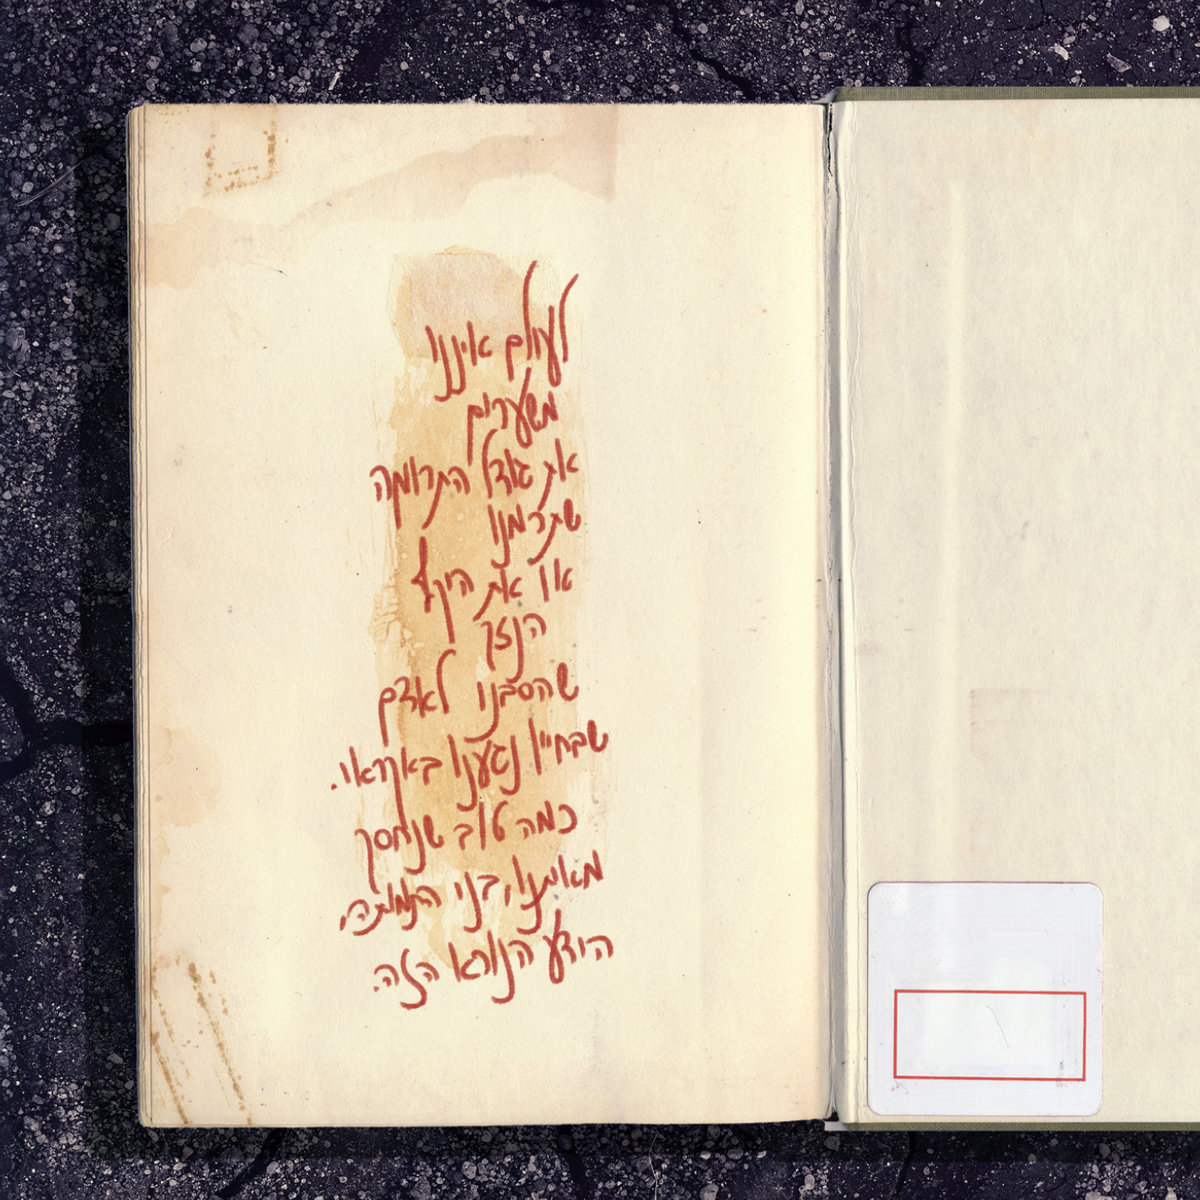 לעולם איננו
משערים
את גודל התרומה
שתרמנו
או את היקף
הנזק
שהסבנו לאדם
שבחייו נגענו באקראי.
כמה טוב שנחסך
מאיתנו, בני התמותה,
הידע הנורא הזה.